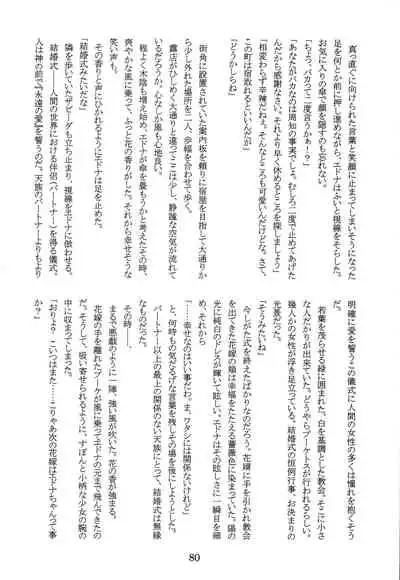 真っ直ぐに向けられた言葉と笑顔に止まってしまいそうになった
足を何とか前に押し進めながら、エドナはふいと視線をそらした。
お気に入りの傘で顔を隠すのも忘れない。
「ちょっ、バカって二度言うか……」
「あなたがバカなのは周知の事実でしょう。むしろ二度で止めてあげた
んだから感謝なさい。それより早く休めるところを探しましょう」
「相変わらず辛辣だねぇ。そんなところも可愛いんだけどな。さて、
この町は宿取れるといいんだが」
「どうかしらね」
街角に設置されていた案内板を頼りに宿屋を目指して大通りか
ら少し外れた場所を二人、歩幅を合わせて歩く。
露店がひしめく大通りと違ってここは少し、静謐な空気が流れて
いるだろうか。心なしか風も心地良い。
程よく木陰も増え始め、エドナが傘を畳もうかと考えたその時、
爽やかな風に乗って、ふっと花の香りがした。それから幸せそうな
笑い声も。
その香りと声にひかれるようにエドナは足を止めた。
「結婚式みたいだな」
隣を歩いていたザビーダも立ち止まり、視線をエドナに倣わせる。
結婚式――人間の世界における伴侶（パートナー）を得る儀式。
人は神の前で「永遠の愛」を誓うのだ。天族のパートナーよりもより
明確に愛を誓うこの儀式に人間の女性の多くは憧れを抱くそう
だ。
若葉を茂らせる緑に囲まれた、白を基調とした教会。そこに小さ
な人だかりが出来ていた。どうやらブーケトスが行われるらしい。
幾人かの女性が浮き足立っている。結婚式の恒例行事。お決まりの
光景だ。
「そうみたいね」
今しがた式を終えたばかりなのだろう。花婿に手を引かれ教会
を出てきた花嫁の頬は幸福をたたえる薔薇色に染まっていた。陽の
光に純白のドレスが輝いて眩しい。エドナはその眩しさに一瞬目を細
め、それから
「……幸せなのはいい事だわ。ま、ワタシには関係ないけれど」
と、何時もの気だるげな言葉を残しその場を後にしようとした。
パートナー以上の最上の関係のない天族にとって、結婚式は無縁
のものだ。
まるで悪戯のように一陣、強い風が吹いた。花の香が強まる。
花嫁の手を離れたブーケが風に乗ってエドナの元まで飛んできたの
だ。そうして、吸い寄せられるように、すぽんと小柄な少女の腕の
中に収まってしまった。
「おりょ、こいつはまた……こりゃあ次の花嫁はエドナちゃんって事
か？」
80